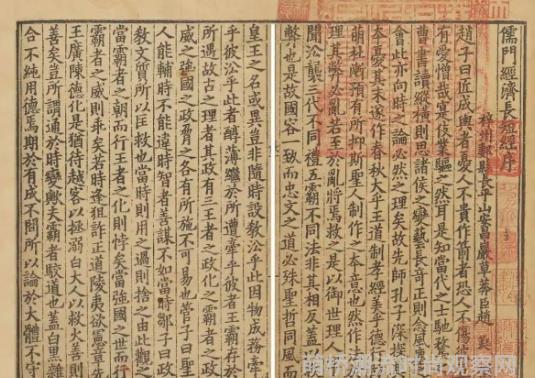 儒門經濟長短經序
梓州郪縣長平山安昌巖草莽臣趙蕤
趙子曰匠成輿者憂人不貴作箭者恐人不傷彼
有愛憎哉寔伎業驅之然耳是知當代之士馳騖
曹書讀縱橫則思諸侯之變藝長奇正則念風
會此亦向時之論必然之理矣故先師孔子深探
本憂其末遂作春秋大乎王道制孝經美乎德
萌杜漸預有所抑斯聖人制作之本意也然作
理其弊必亂若至於亂將焉救之是以御世理人
聞沿襲三代不同禮五霸不同法非其相反蓋以
弊也是故國容一致而忠文之道必殊聖哲同風而
皇王之名或異豈非隨時設教沿乎此因物成務牽
乎彼沿乎此者醇薄繼於所遭牽乎彼者王霸存於
所遇故古之理者其政有三王者之政化之霸者之政
威之強國之政脅之各有所施不可易也管子曰聖
人能輔時不能違時智者善謀不如當時鄒子曰政
教文質所以匡救也當時則用之過則捨之由此觀之
當霸者之朝而行王者之化則悖矣當強國之世而行
霸者之威則乖矣若時逢狙詐正道陵夷欲憲章先
王廣陳德化是猶待越客以拯溺白大人以救火善則
善矣豈所謂通於時變歟夫霸者駮道也蓋白黑雜
合不純用德焉期於有成不問所以論於大體不守
萌桥潮流时尚观察网